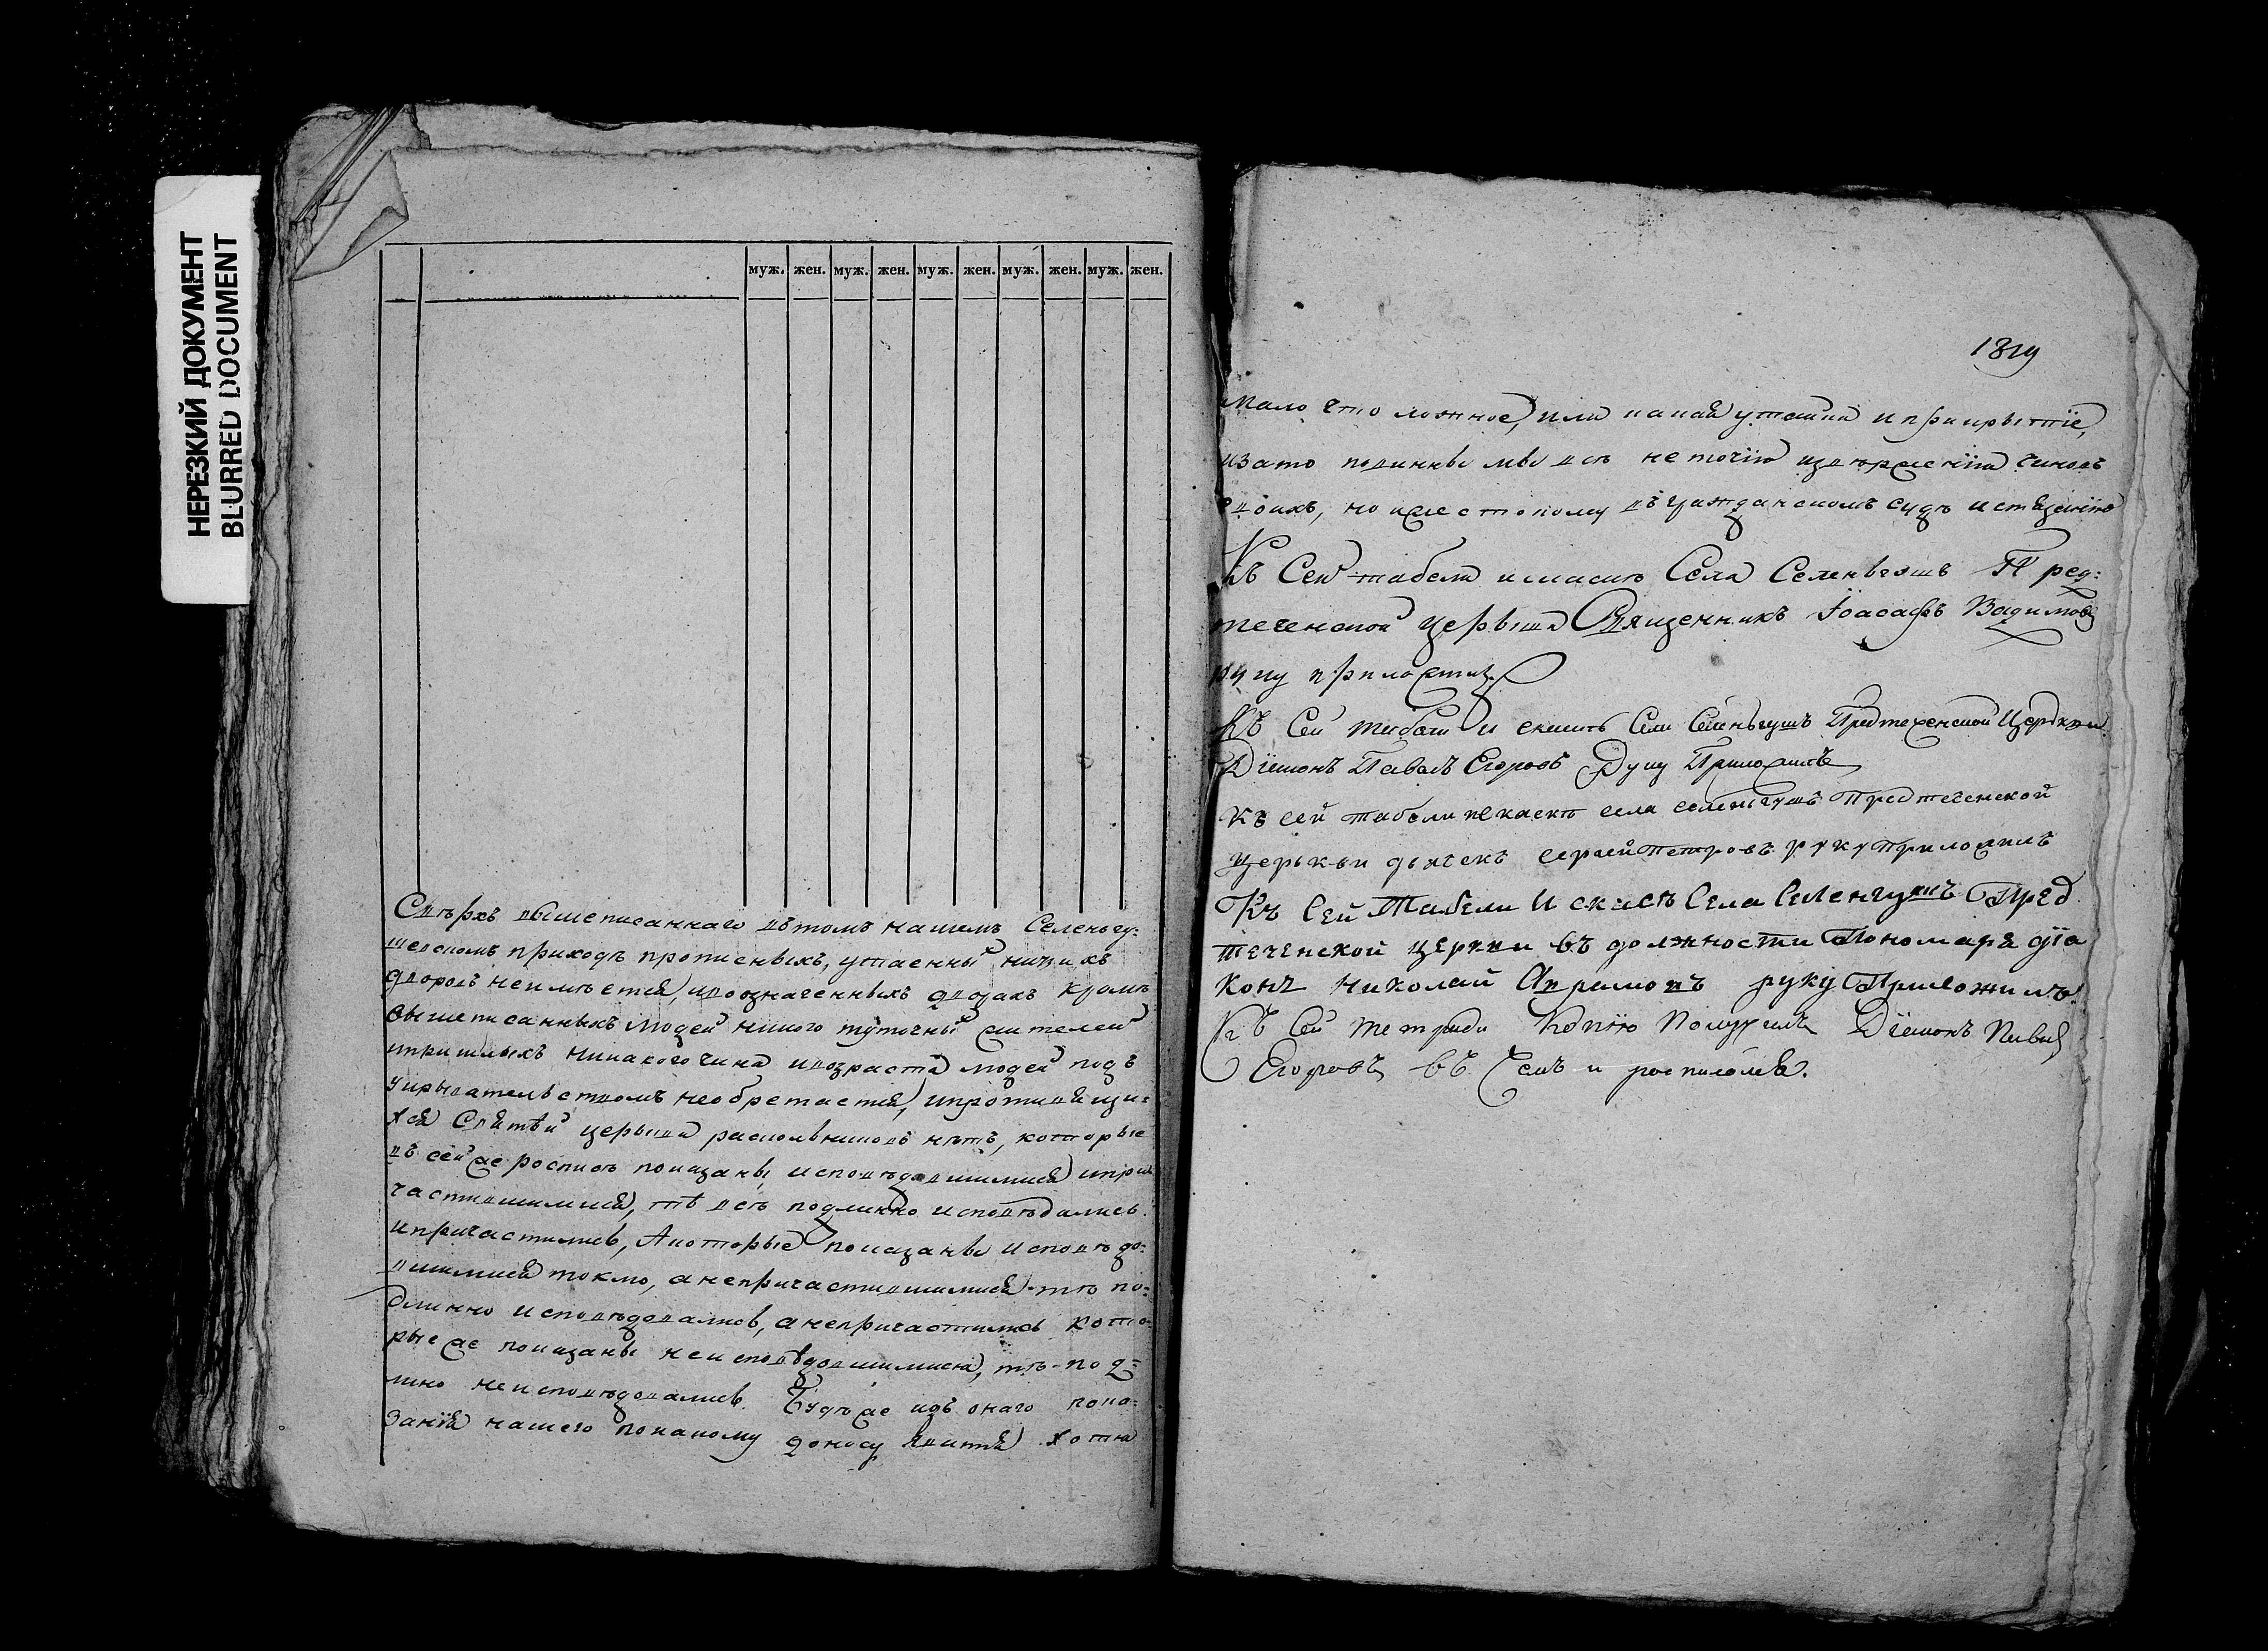 НЕРЕЗКИЙ ДОКУМЕНТ
BLURRED DOCUMENT
муж. жен. муж. жен. муж. жен. муж. жен. муж. жен.
Сверхъ вышеписаннаго въ томъ нашемъ Селеньгу-
шевскомъ приходѣ прописныхъ, утаенныхъ
дворовъ неимѣется, и во означенныхъ дворахъ кромѣ
вышеписанныхъ людей никого туточныхъ жителей
ипришлыхъ никакого чина ивозраста людей подъ
укрывательствомъ необретается, ипротивящи-
хся Святѣй церькви раскольниковъ нѣтъ, которые
въ сей же росписѣ показаны исповѣдавшимися ипри
частившимися, тѣ всѣ подлинно исповѣдались
ипричастились, Акоторые показаны исповѣдо-
вшимися токмо, а непричастившимися тѣ по-
длинно исповѣдовались, а непричастились кото-
рые же показаны неисповѣдовшимися, тѣ под-
лино неисповѣдовались. Будѣ же изъ онаго пока-
занія нашего покакому доносу явится хотя
1819
мало что ложное, или какая утайка иприкрытіе,
изато повинны мы всѣ не точію изверженію чиновъ
своихъ, но ижестокому въ гражданскомъ судѣ истязанію
Къ Сей табели искаскѣ Села Селеньгушъ Пред-
теченской церькви Священникъ Іоасафъ Вадимовъ
руку приложилъ
Къ Сей табели и скаскѣ Села Селеньгушъ Предтеченской Церькви
Діаконъ Павелъ Егоровъ Руку Приложилъ
Къ сей табели искаскѣ села селеньгушъ Предтеченской
церькви дьячекъ сергей петровъ руку приложилъ
Къ Сей Табели И скаскѣ Села Селенгушъ Пред
теченской церкви въ должности Пономаря діа
конъ Николай Аврамовъ руку Приложилъ.
Къ Сей тетради Копію Получилъ Діаконъ Павелъ
Егоровъ въ Семъ и росписался.